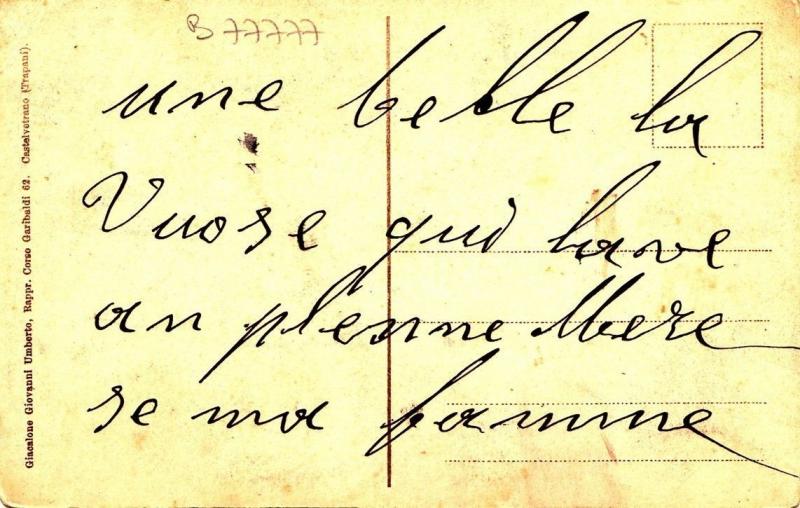 B 77777
une belle la
Vuose qui lave
an plenne Mere
se ma famme
Giacalone Giovanni Umberto, Rappr. Corso Garibaldi 62. Castelvetrano (Trapani).